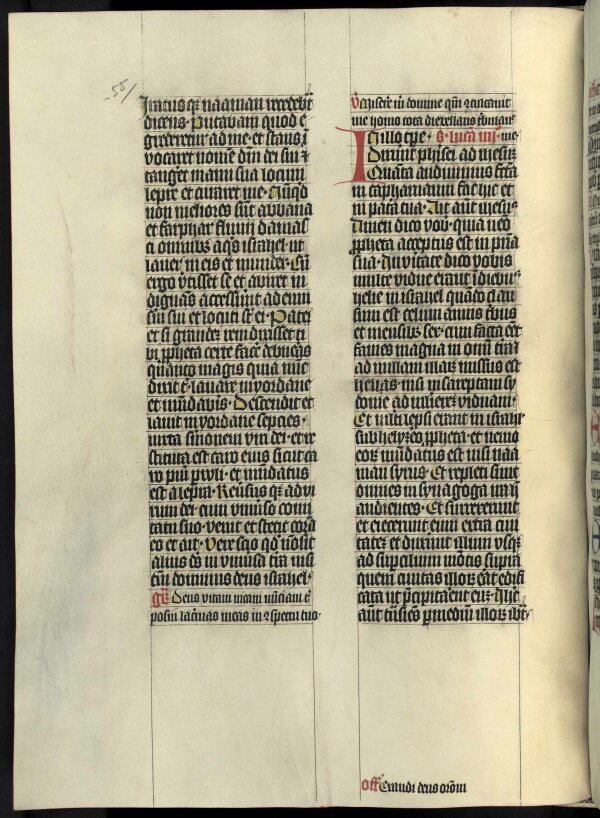 55/
Iratus q̄ naaman recedeb̄t
dicens. Putabam quod e
grederet̄ ad me. et stans i
vocaret nomē dn̄i dei sui ⁊
tang̾et manu sua locum
lepre et curaret me. Nūqd
non meliores sūt abbana
et farphar fluuij damas
ci omnibꝫ aqs israhel. ut
lauer in eis et munder. Cū
ergo v̄tisset se et abiret in
dignās accesserūt ad eum
sui sui et locuti sūt ei. Pater
et si grandē rem dixisset ti
bi ꝓpheta certe facē debuisᷤ
quāto magis quia nūc
dixit t̄. lauare in yordane
et mūdabis. Descendit et
lauit in yordane septies.
iuxta sermonem viri dei. et re
stituta est caro eius sicut ca
ro pueri p̄uuli. et mūdatus
est a lepra. Reūsus qꝫ ad vi
rum dei. cum vniūso comi
tatu suo. venit et stetit corā
eo et ait. Vere scio qd̄ nō sit
alius ds̄ in vniūsa tr̄a nisi
tm̄ dominus deus israhel.
gr̄ Deus vitam meam nūciaui t̄
posuisti lacrimas meas in ⁊spectu tuo.
v̄ Miserere m̄ domine qm̄ ⁊culcauit
me homo tota die bellans tribulauit
In illo tp̄e. s. lucā iiij. me
Dixerūt phisei ad ihesū.
Quāta audiuimus fc̄ta
in capharnaum fac hic et
in pat̄a tua. Ait aūt ihesus
Amen dico vob̄. quia nēo
ꝓpheta acceptus est in pr̄ia
sua. In v̄itate dico vobis
multe vidue erant ī diebus
helie in israhel quādo clau
sum est celum annis tribus
et mensibꝫ sex. cum facta eēt
fames magna in omni tr̄a.
ad nullam illarꝫ missus est
helyas. nisi in sareptam sy
donie ad mulierē viduam.
Et multi lepsi erant in israhel
sub helyzeo ꝓpheta. et nemo
eorꝫ mūdatus est nisi naa
man syrus. Et repleti sunt
omnes in synagoga ira hec
audientes. Et surrexerunt
et eiecerunt eum extra ciui
tatem. et duxerūt illum vsqꝫ
ad supercilium mōtis supra
quem ciuitas illorꝫ erāt edifi
cata ut p̄cipitarent eum. Ihc
aūt trāsiens ꝑ mediū illorꝫ ibat
off̄ Exaudi deus orōm